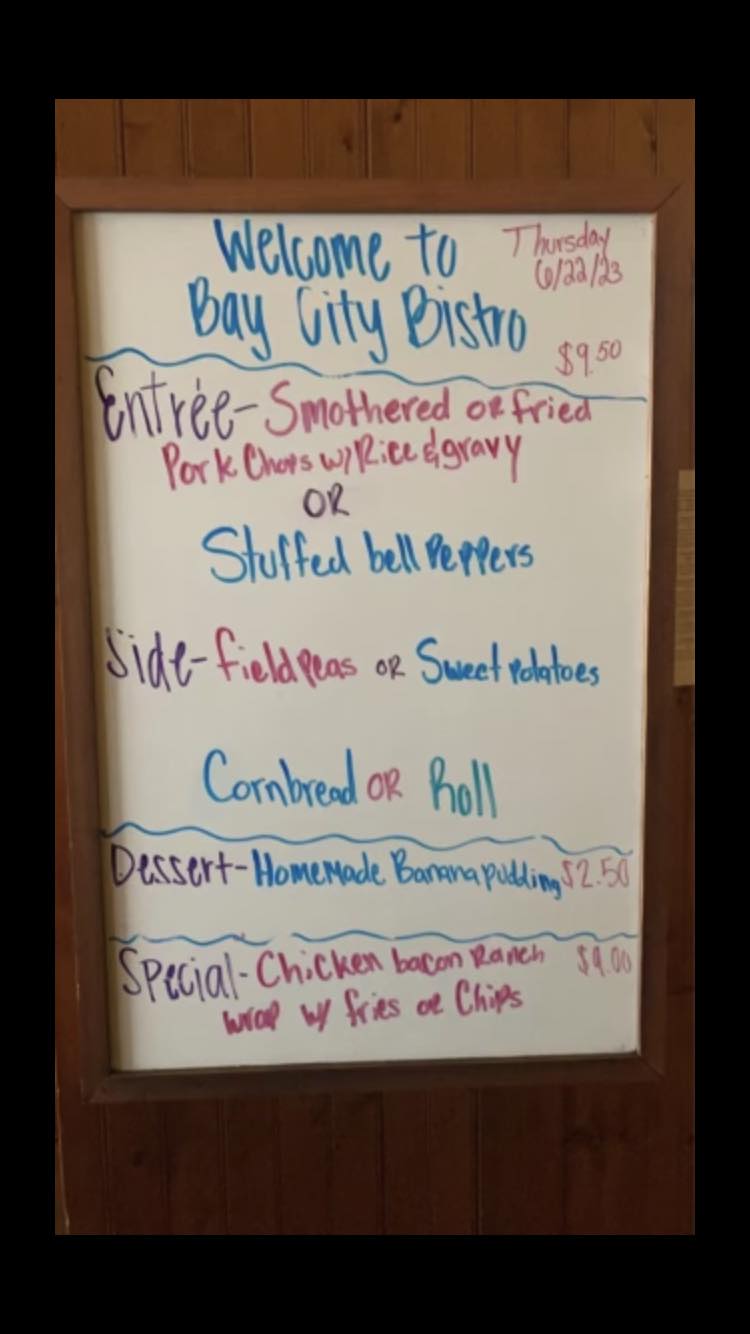 Welcome to
Thursday
6/22/23
Bay City Bistro
$9.50
Entrée- Smothered or fried
Pork Chops w/ Rice & gravy
OR
Stuffed bell Peppers
Side- field peas OR Sweet potatoes
Cornbread OR Roll
Dessert- Homemade Banana pudding $2.50
Special- Chicken bacon Ranch $9.00
wrap w/ fries or Chips